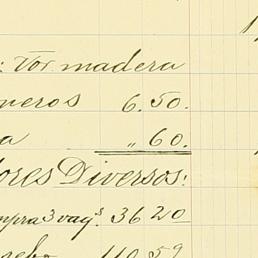 : Tor. madera
neros 6.50.
a „ 60.
ores Diversos:
mpra 3 vags. 36 20
110 59